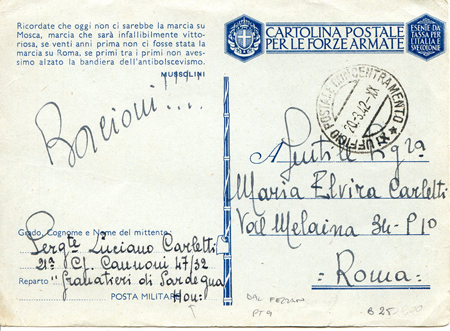 Ricordate che oggi non ci sarebbe la marcia su
Mosca, marcia che sarà infallibilmente vitto-
riosa, se venti anni prima non ci fosse stata la
marcia su Roma, se primi tra i primi non aves-
simo alzato la bandiera dell'antibolscevismo.
MUSSOLINI
CARTOLINA POSTALE
PER LE FORZE ARMATE
ESENTE DA
TASSA PER
L'ITALIA E
SUE COLONIE
UFFICIO POSTALE CONCENTRAMENTO
20-3-42-XX
Bacioni!!...
A Gentile Sg.ra
Maria Elvira Carletti
Val Melaina 34-P10
Roma
Grado, Cognome e Nome del mittente:
Serg.te Luciano Carletti
21ª Cp. Cannoni 47/32
Reparto Granatieri di Sardegna
POSTA MILITARE
DAL FEZZAN
PT 9
B 25